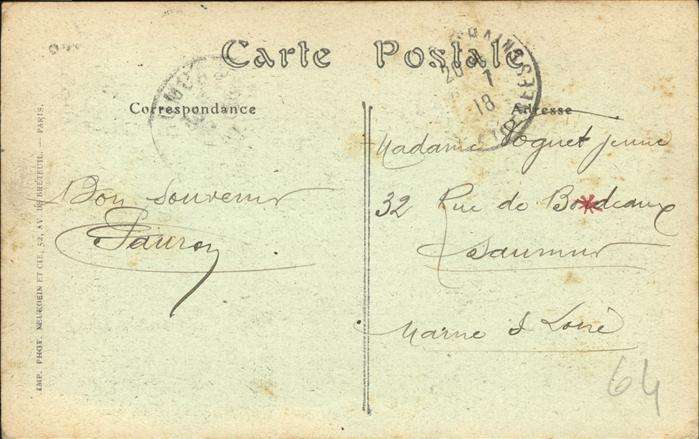 Carte Postale
Correspondance
Adresse
Bon souvenir
Madame Poquet jeune
32 Rue de Bordeaux
Saumur
Maine & Loire
64
20 1
18
IMP. PHOT. NEURDEIN ET CIE, 52, AV. DE BRETEUIL. — PARIS.